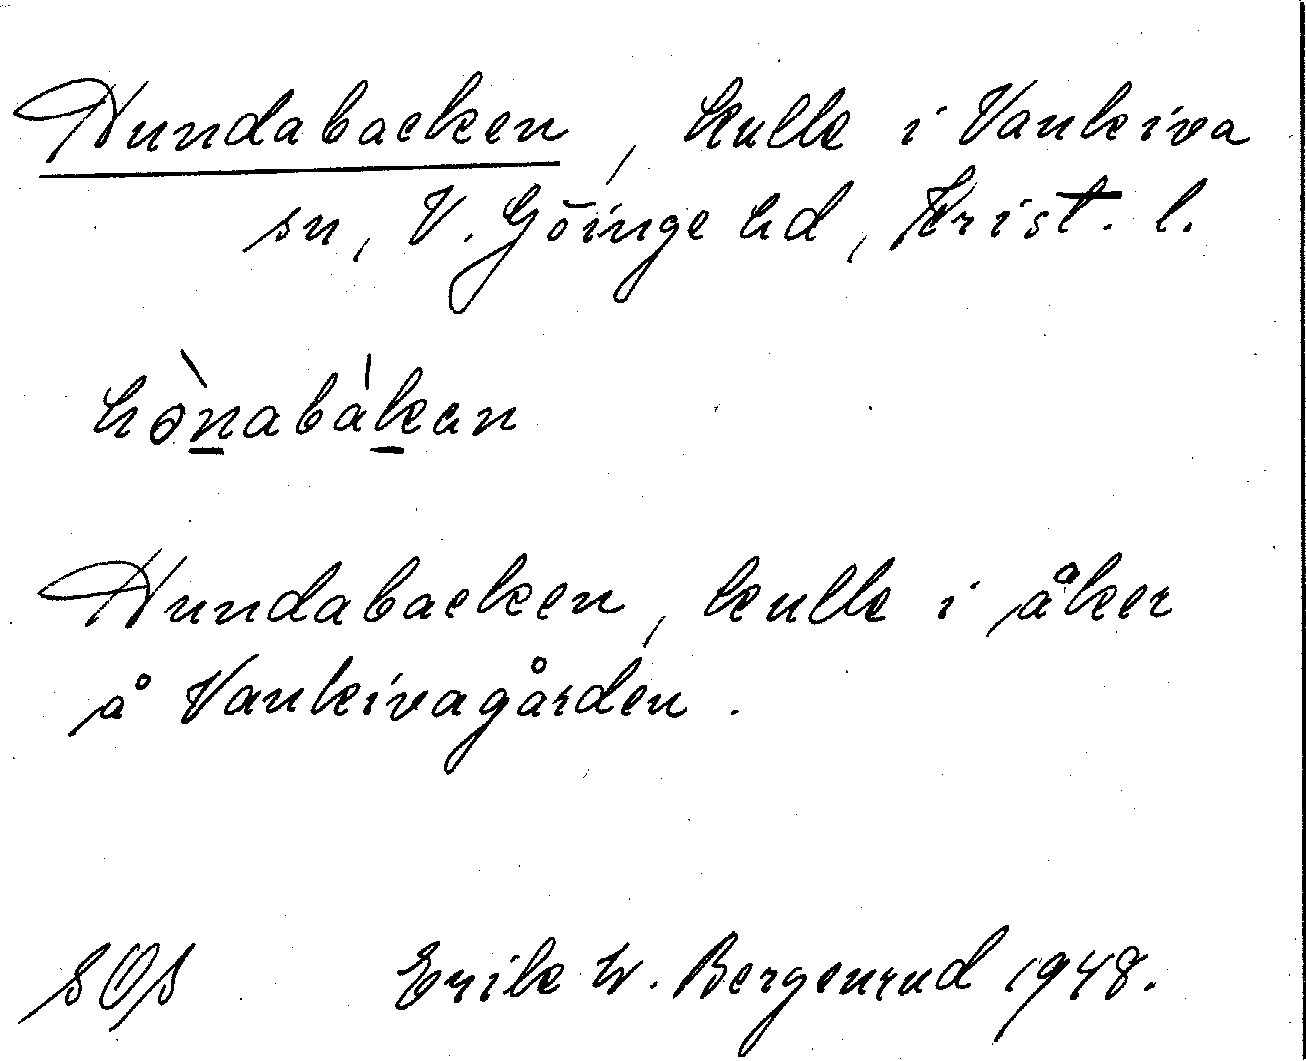 Hundabacken, kulle i Vankiva
sn, V. Göinge hd, Krist. l.
hònabàkan
Hundabacken, kulle i åker
å Vankivagården.
SOS Erik W. Bergenrud 1948.